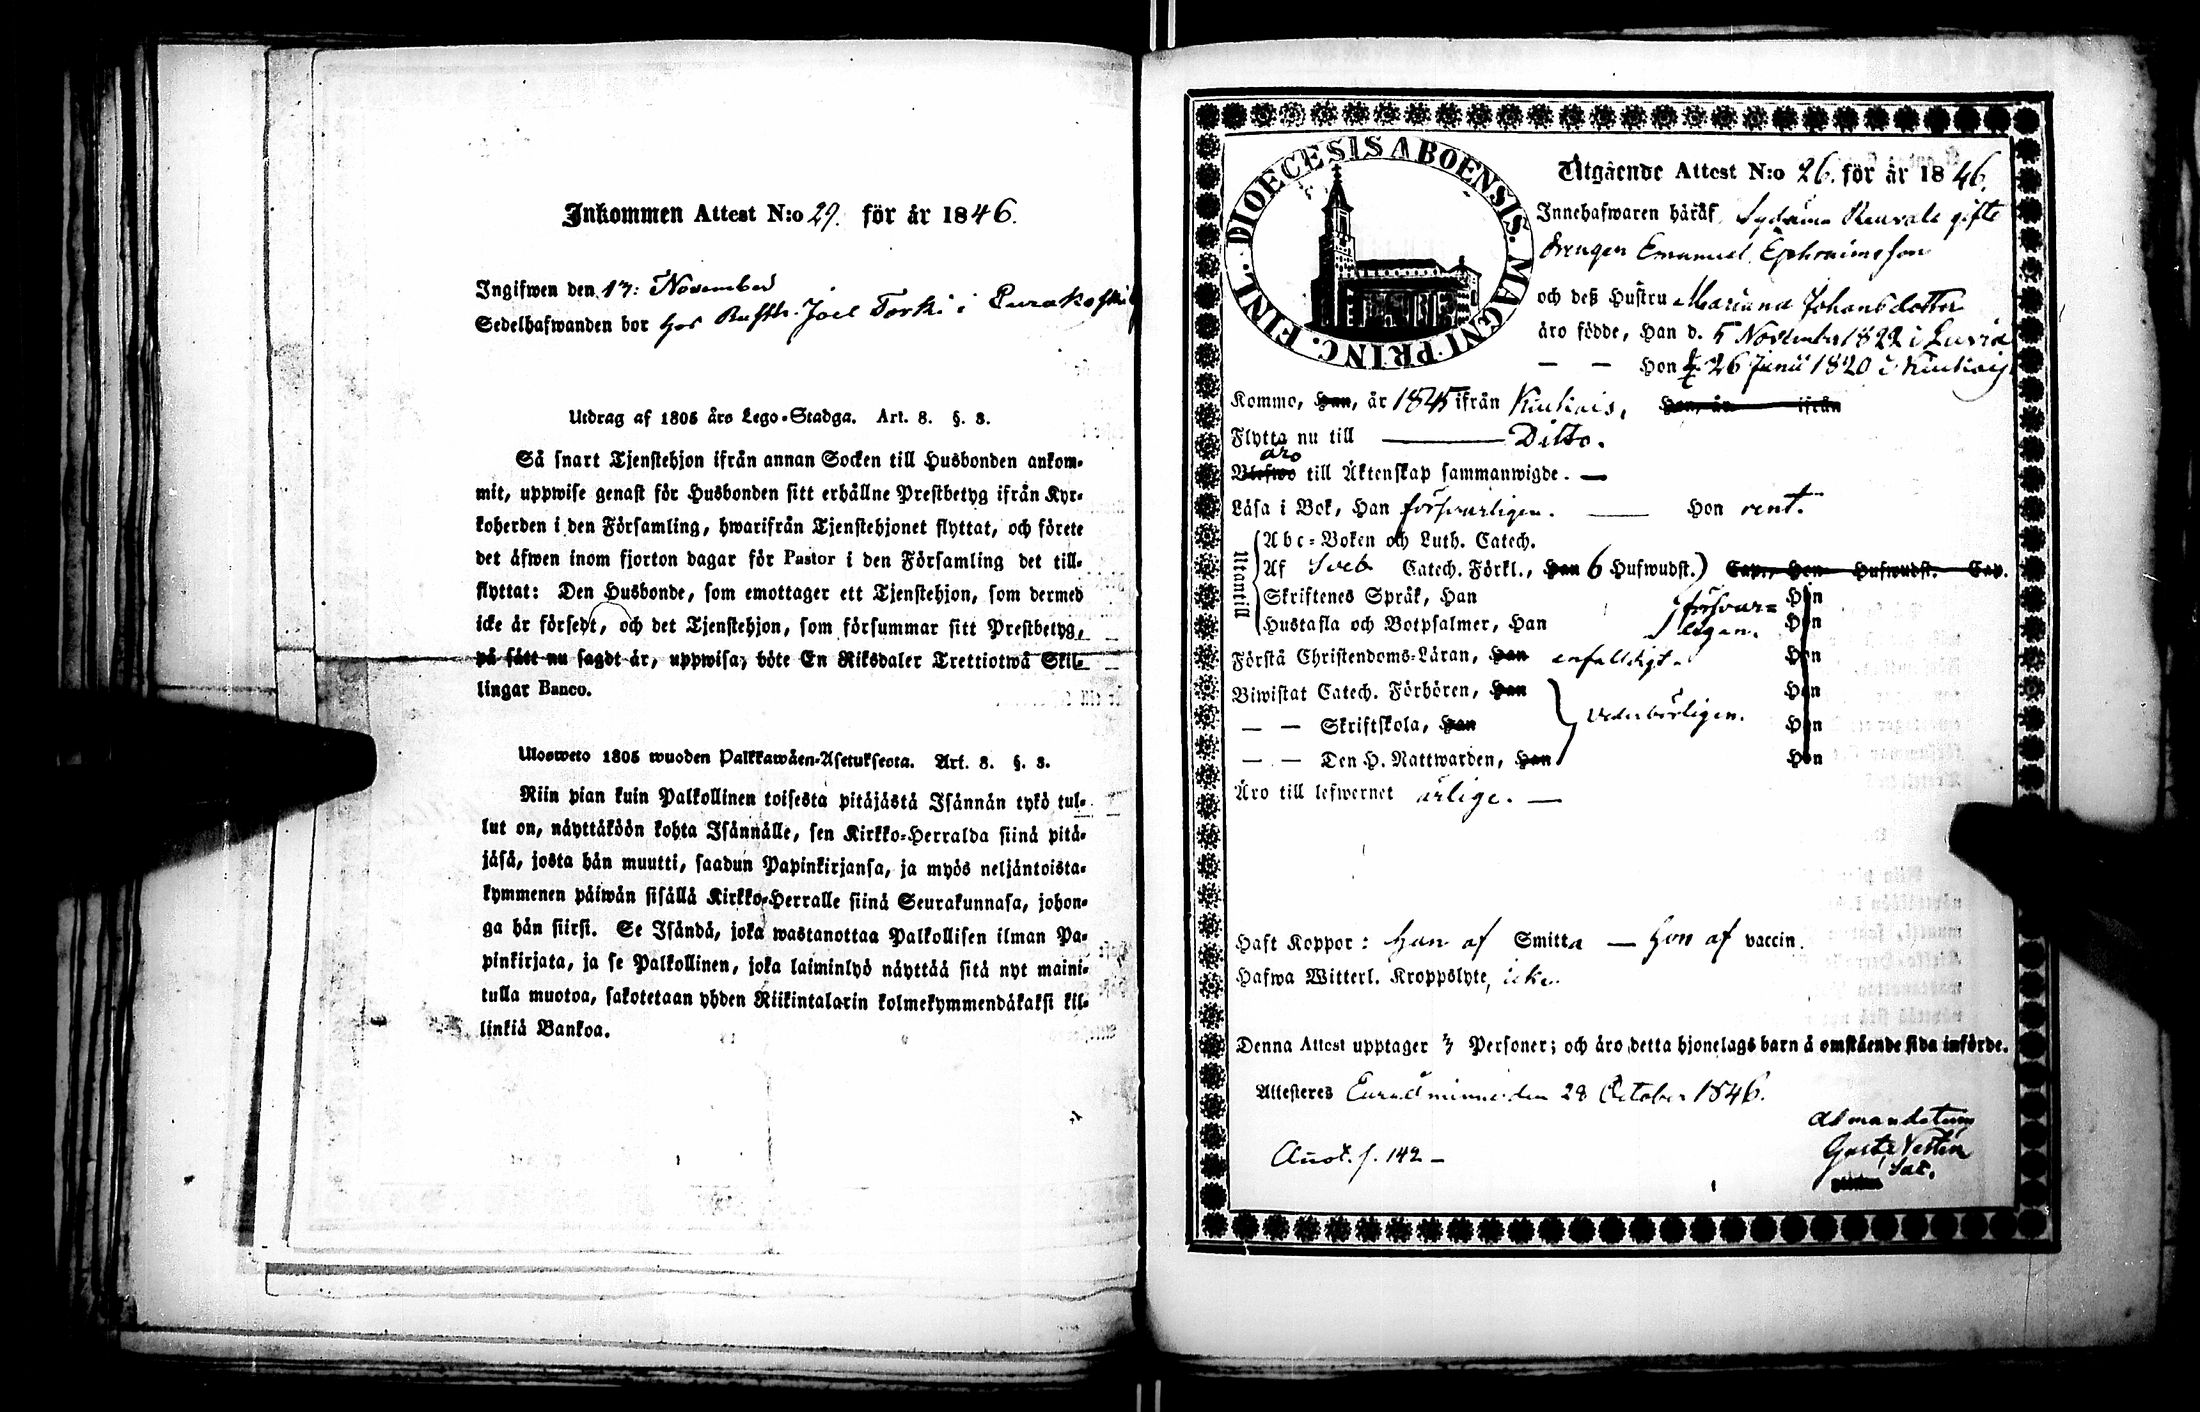 Inkommen Attest N:o 29. för år 1846.
Ingifwen den 17: November
Sedelhafwanden bor hos Rusth. Joel Torki i
Utdrag af 1805 års Lego-Stadga. Art. 8. §. 3.
Så snart Tjenstehjon ifrån annan Socken till Husbonden ankom-
mit, uppwise genast för Husbonden sitt erhållne Prestbetyg ifrån Kyr-
koherden i den Församling, hwarifrån Tjenstehjonet flyttat, och förete
det äfwen inom fjorton dagar för Pastor i den Församling det till-
flyttat: Den Husbonde, som emottager ett Tjenstehjon, som dermed
icke är försedt, och det Tjenstehjon, som försummar sitt Prestbetyg,
på sätt nu sagdt är, uppwisa; böte En Riksdaler Trettiotwå Skil-
lingar Banco.
Ulosweto 1805 wuoden Palkkawäen-Asetuksesta. Art. 8. §. 3.
Niin pian kuin Palkollinen toisesta pitäjästä Isännän tykö tul-
lut on, näyttäköön kohta Isännälle, sen Kirkko-Herralda siinä pitä-
jäsä, josta hän muutti, saadun Papinkirjansa, ja myös neljäntoista-
kymmenen päiwän sisällä Kirkko-Herralle siinä Seurakunnasa, johon-
ga hän siirsi. Se Isändä, joka wastanottaa Palkollisen ilman Pa-
pinkirjata, ja se Palkollinen, joka laiminlyö näyttää sitä nyt maini-
tulla muotoa, sakotetaan yhden Riikintalarin kolmekymmendäkaksi kil-
linkiä Bankoa.
DIOECESIS ABOENSIS. MAGNI PRINC. FINL.
Utgående Attest N:o 26. för år 1846.
Innehafwaren häraf, gifte
Drengen Emanuel Ephraimsson
och deß Hustru Mariana Johansdotter
äro födde, Han d. 5 November 1822 i Luvia
— — Hon d. 26 Junii 1820 i Kiukais
Kommo, Han, år 1845 ifrån Kiukais, Hon, år ifrån
Flytta nu till — Ditto.
äro
Blefwo till Äktenskap sammanwigde. —
Läsa i Bok, Han försvarligen. — Hon rent.
Utantill
Abc-Boken och Luth. Catech.
Af Sveb Catech. Förkl., Han 6 Hufwudst.) Cap., Hon Hufwudst. Cap.
Skriftenes Språk, Han försvar= Hon
Hustafla och Botpsalmer, Han ligen. Hon
Förstå Christendoms-Läran, Han enfalldigt. Hon
Biwistat Catech. Förhören, Han Hon
— — Skriftskola, Han vederbörligen. Hon
— — Den H. Nattwarden, Han Hon
Äro till lefwernet ärlige. —
Haft Koppor: Han af Smitta — Hon af vaccin.
Hafwa Witterl. Kroppslyte, icke.
Denna Attest upptager 3 Personer; och äro detta hjonelags barn å omstående sida införde.
Attesteres Euraåminne den 28 October 1846.
Ad mandatum
Gust:
Sac.
f. 142 —